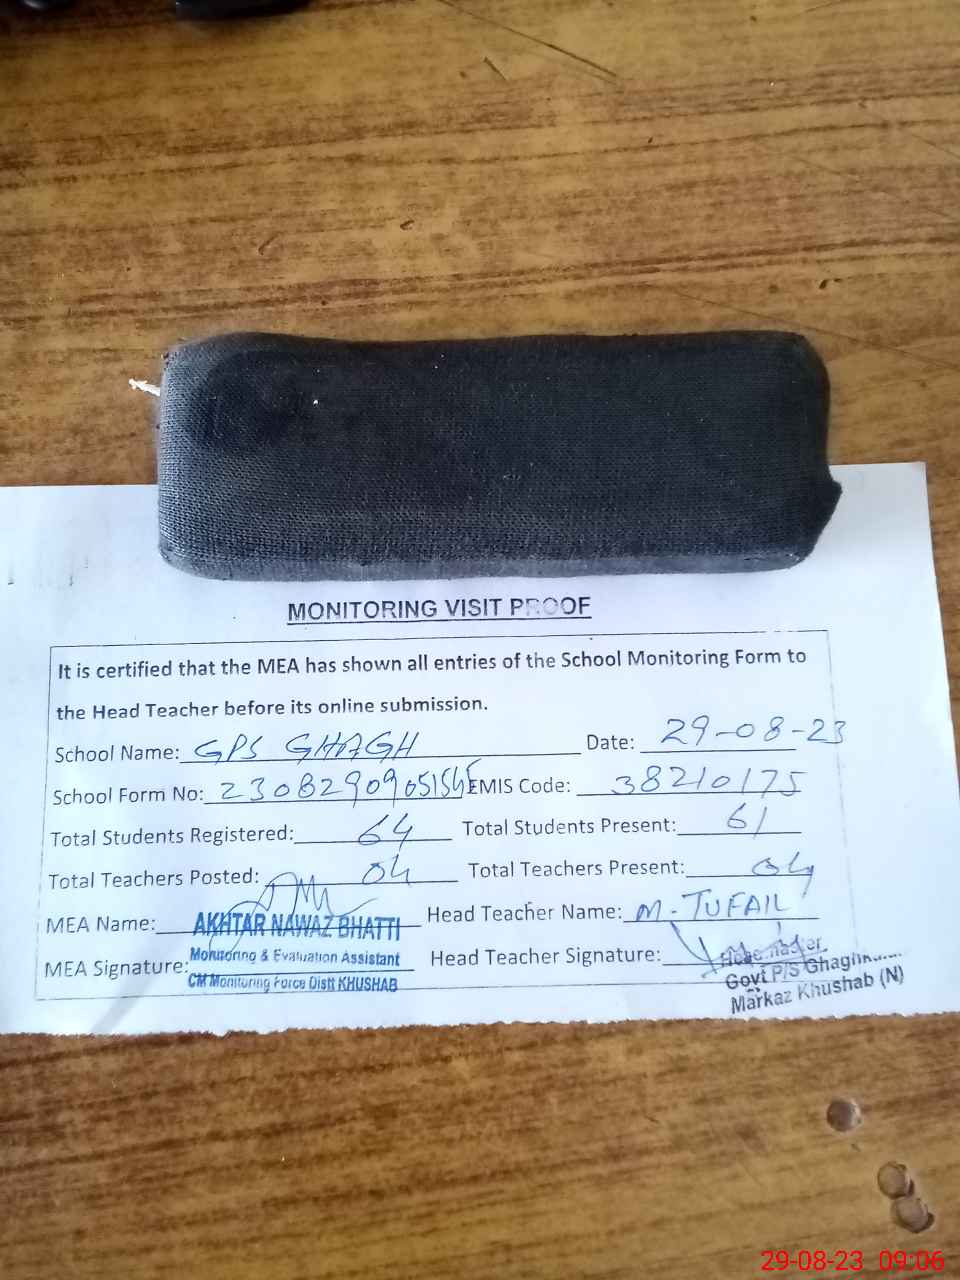 MONITORING VISIT PROOF
It is certified that the MEA has shown all entries of the School Monitoring Form to
the Head Teacher before its online submission.
School Name: GPS GHAGH Date: 29-08-23
School Form No: EMIS Code: 38210175
Total Students Registered: 64 Total Students Present: 61
Total Teachers Posted: 04 Total Teachers Present: 04
MEA Name: AKHTAR NAWAZ BHATTI Head Teacher Name: M. TUFAIL
Monitoring & Evaluation Assistant
MEA Signature: Head Teacher Signature: Headmaster
CM Monitoring Force Distt KHUSHAB
Govt P/S
Markaz Khushab (N)
29-08-23 09:06